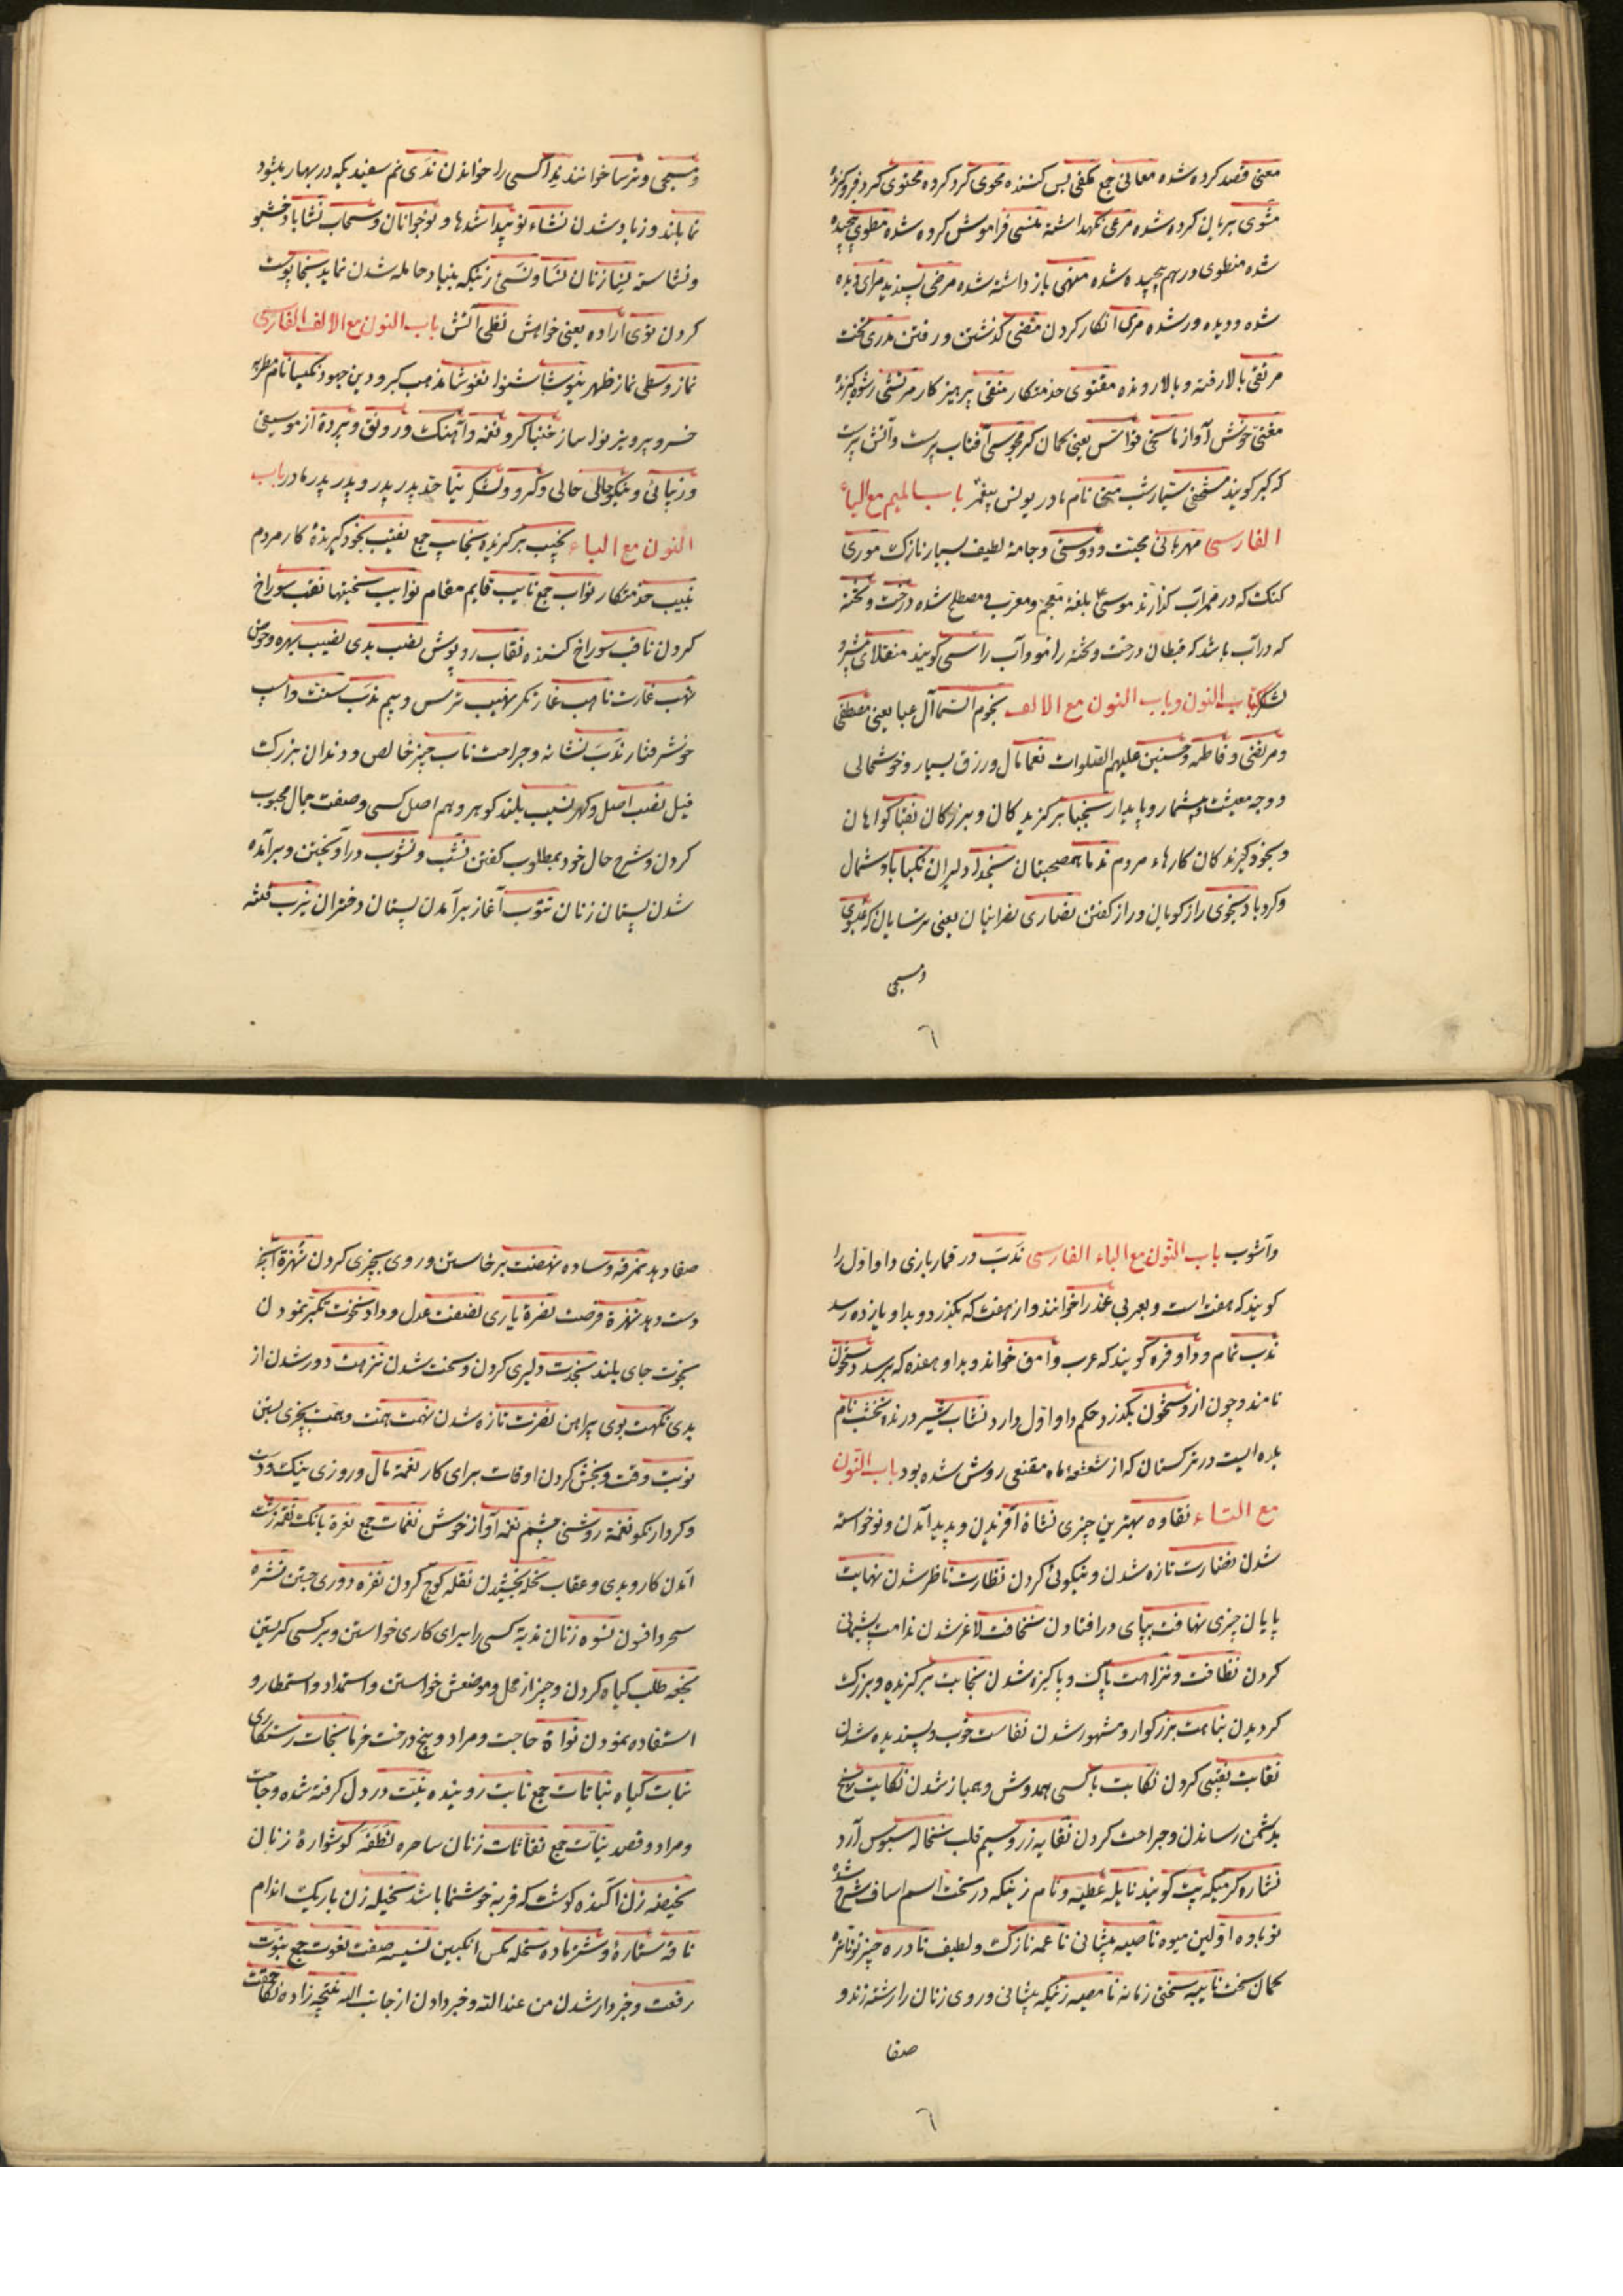 معنی قصد کرده شده معانی جمع مکفی بس کننده محوی گرد کرده محتوی گرد فروگیرنده
مشوی بریان کرده شده مرعی نگهداشته منسی فراموش کرده شده مطوی پیچیده
شده منطوی درهم پیچیده شده منهی باز داشته شده مرضی پسندیده مرای دیده
شده و دیده ور شده مری انکار کردن مضی گذشتن و رفتن مدری تخت
مرتقی بالا رفته و بالا رونده مقتوی خدمتکار متقی پرهیزکار مرتشی رشوه گیرنده
مغنی خوش آواز ماسخی قواس یعنی کمان گر مجوسی آفتاب پرست و آتش پرست
که گبر گویند متی نام مادر یونس پیغمبر باب المیم مع الیاء
الفارسی مهربانی محبت و دوستی و جامه لطیف بسیار نازک موری
کنک که در ممر آب گذارند موسی بلغة معجم و معرب مصطلح شده درخت و تخته
که در آب باشد که قبطان درخت و تخته را مو و آب را سی گویند منقلای پیشرو
لشکر کتاب النون و باب النون مع الالف نجوم السما آل عبا یعنی مصطفی
و مرتضی و فاطمه و حسنین علیهم الصلوات نعما مال و رزق بسیار و خوشحالی
و وجه معیشت بیشمار و پایدار نجبا برگزیدگان و بزرگان نقبا گواهان
و بخود گیرندگان کارهاء مردم ندما همصحبتان نجدا دلیران نکبا باد شمال
و گرد باد نجوی راز گویان و راز گفتن نصاری نصرانیان یعنی ترسایان که عیسوی
و مسیحی
و مسیحی و ترسا خوانند ندا کسی را خواندن ندی نم سفید که در بهار بشود
نما بلند و زیاد شدن نشاء نو پیدا شدها و نوجوانان و سحاب نشا باد خشبو
و نشاسته نسا زنان نسا و نسئ زنیکه بنیاد حامله شدن نماید نجا پوست
کردن نوی اراده یعنی خواهش نظی آتش باب النون مع الالف الفارسی
نماز وسطی نماز ظهر نیوشا شنوا نغوشا مذهب گبر و دین جهود نکیسا نام مطربه
خسرو پرویز نوا ساز خنیاگر و نغمه و آهنک و رونق و پرده از موسیقی
و زیبائی و نیکوحالی خالی و گرو و لشکر نیا جد پدر پدر و پدر پدر مادر باب
النون مع الباء نجیب برگزیده نجایب جمع نقیب بخود گیرنده کار مردم
نبیب خدمتکار نواب جمع نایب قایم مقام نوایب سختیها نقب سوراخ
کردن ناقب سوراخ کننده نقاب روپوش نصب بدی نصیب بهره و حوض
نهب غارت ناهب غارتگر نهیب ترس و بیم ندب سنت و اسپ
خوشرفتار ندب نشانه و جراحت ناب چیز خالص و دندان بزرگ
فیل نصب اصل و گهر نسیب بلند گوهر و هم اصل کسی و صفت جمال محبوب
کردن و شرح حال خود بمطلوب گفتن نشب و نشوب درآویختن و برآمده
شدن پستان زنان نتوب آغاز برآمدن پستان دختران نیرب فتنه
و آشوب باب النون مع الباء الفارسی ندب در قماربازی داو اول را
گویند که هفت است و بعربی عذرا خوانند و از هفت که بگذرد و بداو یازده رسد
ندب تمام و داو فره گویند که عرب وامق خواند و بداو هفده که برسد دستخون
نامند و چون از دستخون بگذرد حکم داو اول دارد نشاب شیر درنده نخشب نام
بلده ایست در ترکستان که از شعشعه ماه مقنعی روشن شده بود باب النون
مع التاء نقاوه بهترین چیزی نشاة آفریدن و پدید آمدن و نوخواسته
شدن نضارت تازه شدن و نیکوئی کردن نظارت ناظر شدن نهایت
پایان چیزی نهافت بپای در افتادن نحافت لاغر شدن ندامت پشیمانی
کردن نظافت و نزاهت پاک و پاکیزه شدن نجابت برگزیده و بزرگ
گردیدن نباهت بزرگوار و مشهور شدن نفاست خوب و پسندیده شدن
نقابت نقیبی کردن نکابت با کسی همدوش و همباز شدن نکایت رنج
بدشمن رساندن و جراحت کردن نقایه زر و سیم قلب نخاله سبوس آرد
نشاره کرمیکه بیت گویند نایله عطیه و نام زنیکه در تحت اسم اساف شرح شد
نوباوه اولین میوه ناصیه پیشانی ناعمه نازک و لطیف نادره چیز نو ناتره
کمان سخت نایبه سختی زمانه نامصه زنیکه پیشانی و روی زنان را رشته زند و
صفا
صفا دهد نمرقه وساده نهضت برخاستن و روی بچیزی کردن نهزة آنچه
دست دهد نهزة فرصت نصرة یاری نصفت عدل و داد نخوت تکبر نمودن
نجوت جای بلند نجدت دلیری کردن و سخت شدن نزهت دور شدن از
بدی نکهت بوی پیراهن نضرت تازه شدن نهمت همت و همت بچیزی بستن
نوبت وقت و بخش کردن اوقات برای کار نعمة مال و روزی نیک و دست
و کردار نکو نعمة روشنی چشم نغمه آواز خوش نغمات جمع نعرة بانک نقمة زشت
آمدن کار و بدی و عقاب نحله بخشیدن نقله کوچ کردن نفره دوری جستن نشره
سحر و افسون نسوه زنان ندبة کسی را برای کاری خواستن و بر کسی گریستن
نجعه طلب گیاه کردن و چیز از محل و موضعش خواستن و استمداد و استمطار و
استفاده نمودن نواة حاجت و مراد و بیخ درخت خرما نجات رستگاری
نبات گیاه نباتات جمع نابت روینده نیت در دل گرفته شده و حاجت
و مراد و قصد نیات جمع نفاثات زنان ساحره نطفة گوشواره زنان
نحیضه زن آکنده گوشت که فربه خوشنما باشد نحیله زن باریک اندام
ناقه ستاره و شتر ماده نحله مگس انگبین نسیسه صفت نعوت جمع نبوت
رفعت و خبردار شدن من عند الله و خبر دادن از جانب اله نتیجه زاده نکاحت